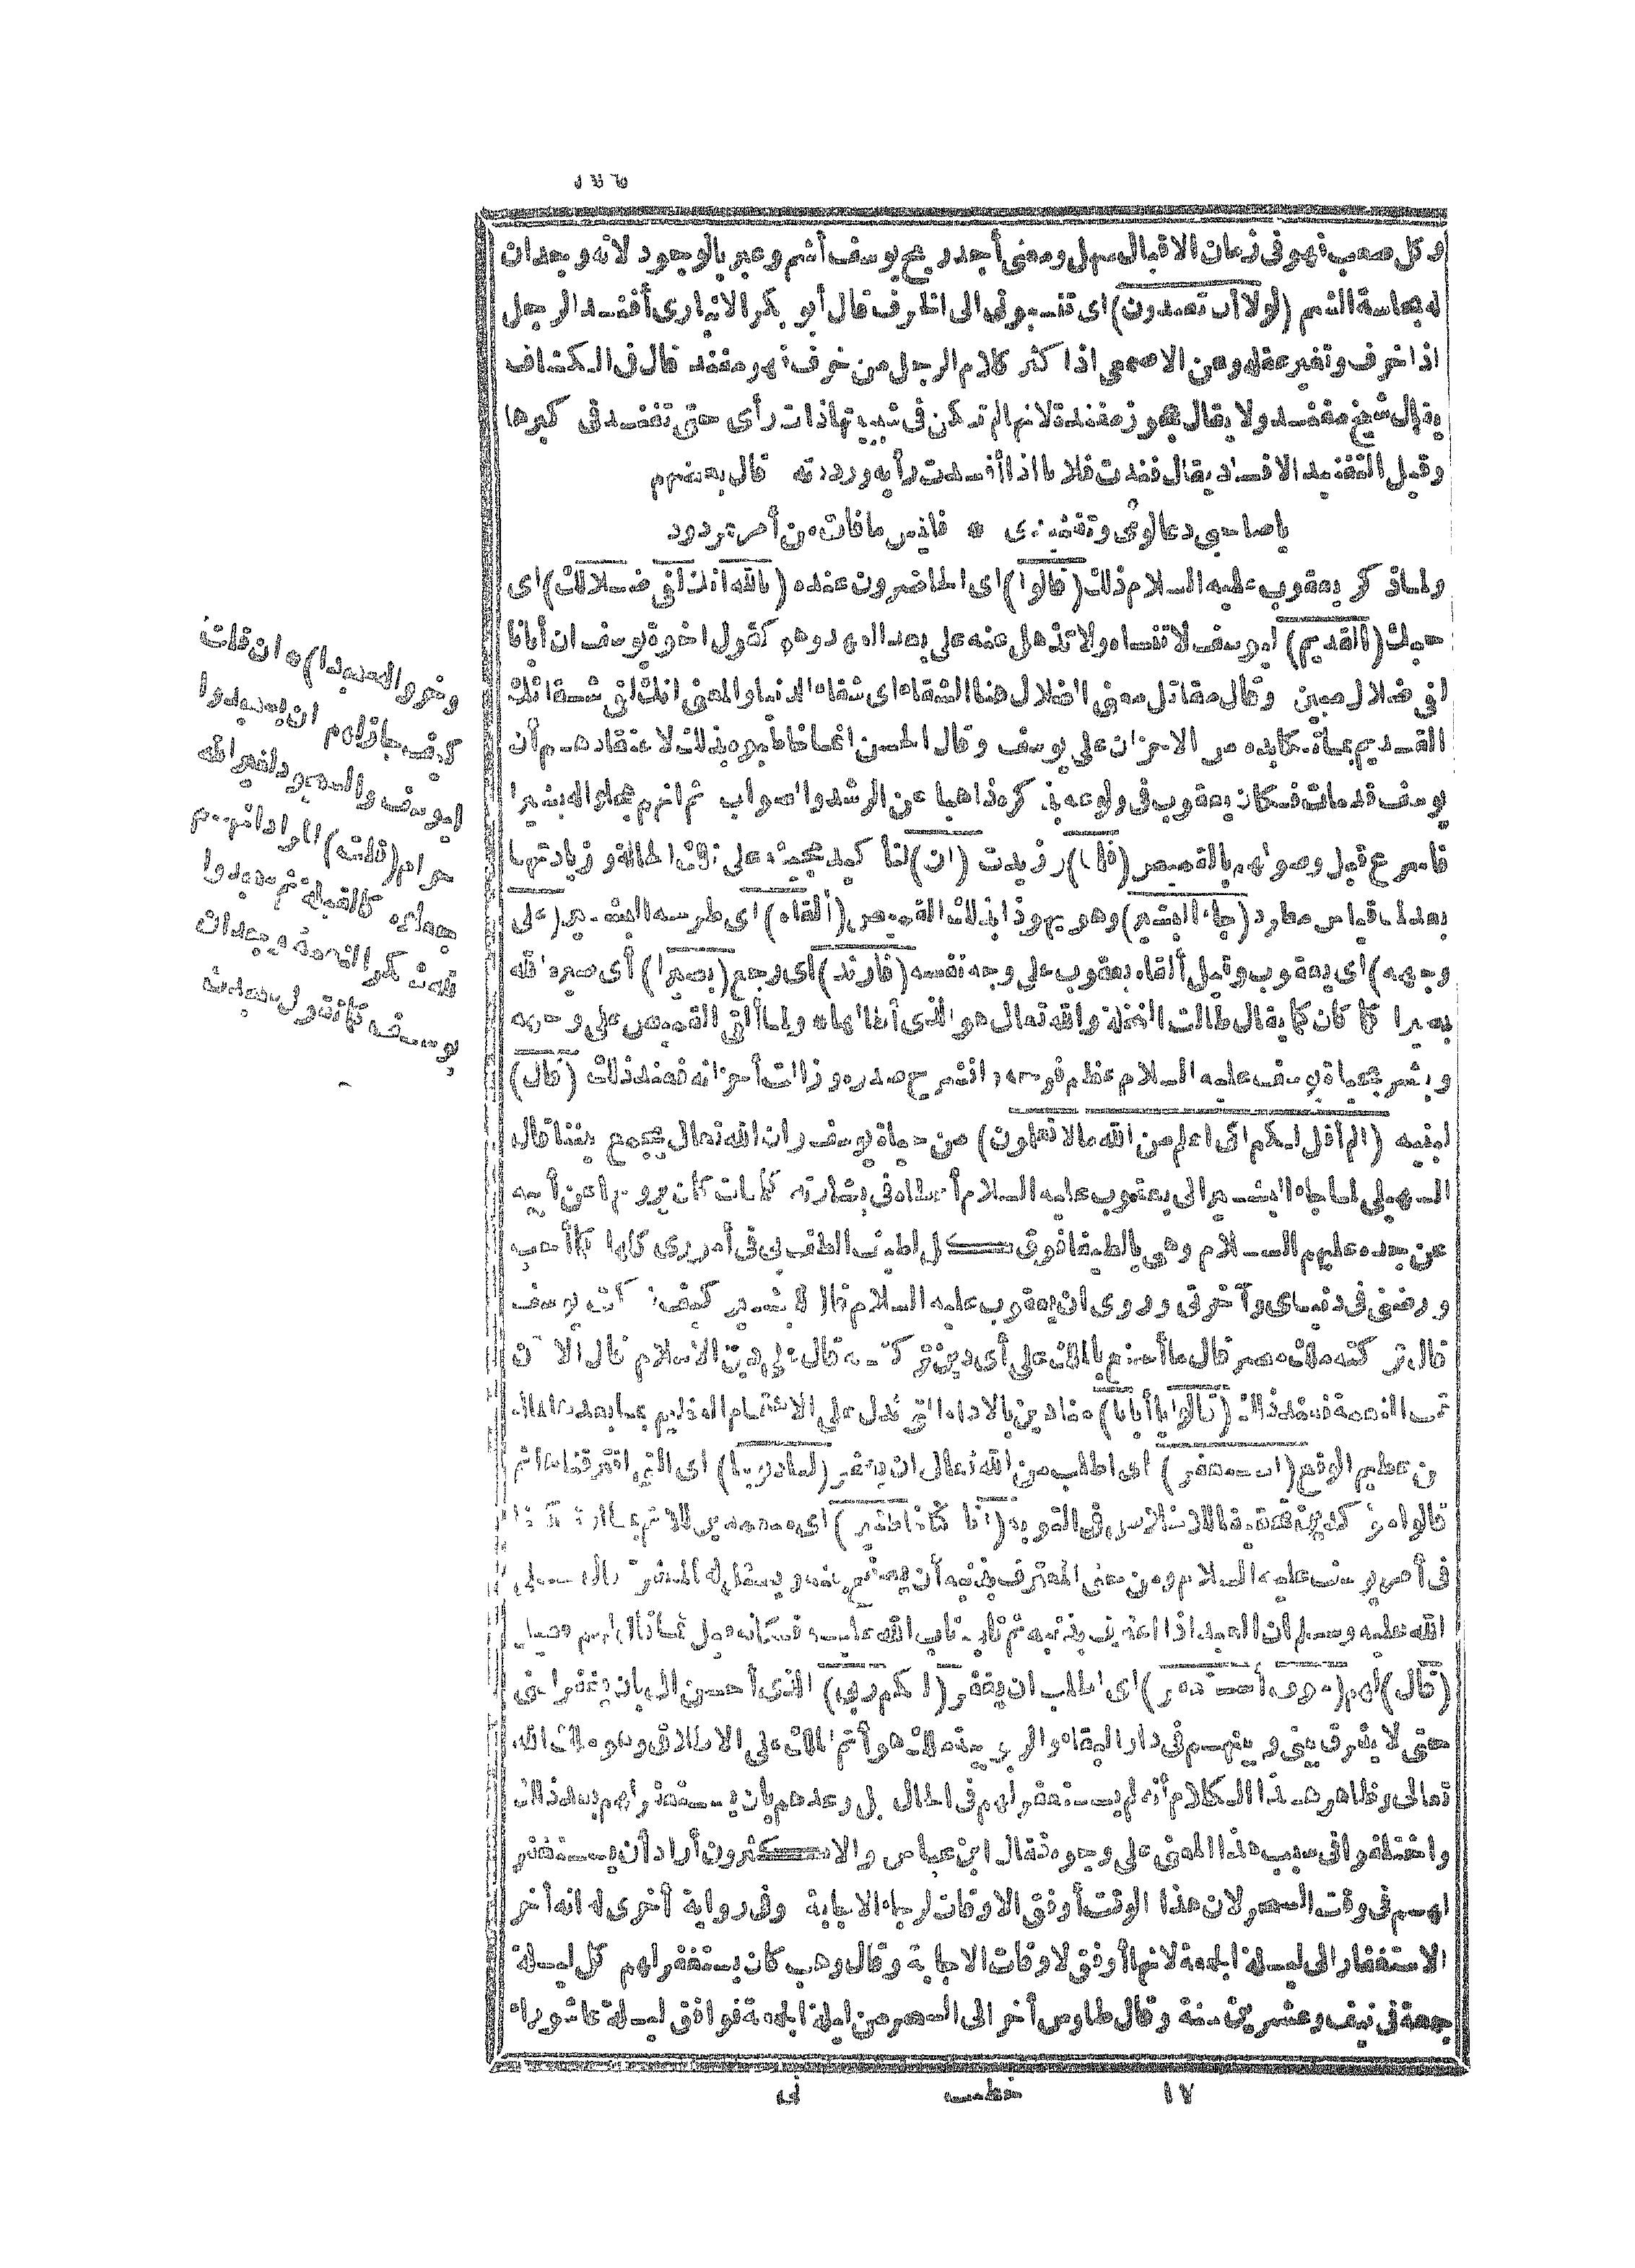 وكل صعب فهو فى زمان الاقبال سهل ومعنى أجد ريح يوسف أشم وعبر بالوجود لانه وجدان
له بحاسة الشم (لولا أن تفندون) اى تنسبونى الى الخرف قال أبو بكر الانبارى أفند الرجل
اذا خرف وتغير عقله وعن الاصمعى اذا كثر كلام الرجل من خرف فهو مفند قال فى الكشاف
يقال شيخ مفند ولا يقال عجوز مفندة لانها لم تكن فى شبيبتها ذات رأى حتى تفند فى كبرها
وقيل التفنيد الافساد يقال فندت فلانا اذا أفسدت رأيه ورددته قال بعضهم
يا صاحبى دعا لومى وتفنيدى * فليس ما فات من أمر بمردود
ولما ذكر يعقوب عليه السلام ذلك (قالوا) اى الحاضرون عنده (تالله انك لفى ضلالك) اى
حبك (القديم) ليوسف لا تنساه ولا تذهل عنه على بعد العهد وهو كقول اخوة يوسف ان أبانا
لفى ضلال مبين وقال مقاتل معنى الضلال هنا الشقاء اى شقاء الدنيا والمعنى انك لفى شقائك
القديم بما تكابده من الاحزان على يوسف وقال الحسن انما خاطبوه بذلك لاعتقادهم أن
يوسف قد مات فكان يعقوب فى ولوعه بذكره ذاهبا عن الرشد والصواب ثم انهم عجلوا له بشيرا
فاسرع قبل وصولهم بالقميص (فلما) وزيدت (أن) لتأكيد مجيئه على تلك الحالة وزيادتها
بعد لما قياس مطرد (جاء البشير) وهو يهوذا بذلك القميص (ألقاه) اى طرحه البشير (على
وجهه) اى يعقوب وقيل ألقاه يعقوب على وجه نفسه (فارتد) اى رجع (بصيرا) أى صيره الله
بصيرا كما كان كما يقال طالت النخلة والله تعالى هو الذى أطالها ولما ألقى القميص على وجهه
وبشر بحياة يوسف عليه السلام عظم فرحه وانشرح صدره وزالت أحزانه فعند ذلك (قال)
لبنيه (ألم أقل لكم انى أعلم من الله ما لا تعلمون) من حياة يوسف وان الله تعالى يجمع بيننا قال
السهيلى لما جاء البشير الى يعقوب عليه السلام أعطاه فى بشارته كلمات كان يرويها عن أبيه
عن جده عليهم السلام وهى يا لطيفا فوق كل لطيف الطف بى فى أمورى كلها كما أحب
ورضنى فى دنياى وآخرتى وروى ان يعقوب عليه السلام قال للبشير كيف تركت يوسف
قال تركته ملك مصر قال ما أصنع بالملك على أى دين تركته قال على دين الاسلام قال الآن
تمت النعمة فعند ذلك (قالوا يا أبانا) منادين بالاداة التى تدل على الاهتمام العظيم بما بعدها لما له
من عظيم الوقع (استغفر) اى اطلب من الله تعالى ان يغفر (لنا ذنوبنا) اى التى اقترفناها ثم
قالوا مؤكدين تحقيقا للاخلاص فى التوبة (انا كنا خاطئين) اى متعمدين للاثم بما ارتكبنا
فى أمر يوسف عليه السلام ومن حق المعترف بذنبه أن يصفح عنه ويسئل له المغفرة قال صلى
الله عليه وسلم ان العبد اذا اعترف بذنبه ثم تاب تاب الله عليه فكأنه قيل فما قال لهم فقيل
(قال) لهم (سوف أستغفر) اى اطلب ان يغفر (لكم ربى) الذى أحسن الى بان يغفر لبنى
حتى لا يفرق بينى وبينهم فى دار البقاء والربوبية ملك هو أتم الملك على الاطلاق وهو ملك الله
تعالى وظاهر هذا الكلام أنه لم يستغفر لهم فى الحال بل وعدهم بان يستغفر لهم بعد ذلك
واختلفوا فى سبب هذا المعنى على وجوه فقال ابن عباس والاكثرون أراد أن يستغفر
لهم فى وقت السحر لان هذا الوقت أوفق الاوقات لرجاء الاجابة وفى رواية أخرى له انه أخر
الاستغفار الى ليلة الجمعة لانها أوفق لاوقات الاجابة وقال وهب كان يستغفر لهم كل ليلة
جمعة فى نيف وعشرين سنة وقال طاوس أخر الى السحر من ليلة الجمعة فوافق ليلة عاشوراء
١٧ خطيب نى
وخروا له سجدا) * ان قلت
كيف جاز لهم ان يسجدوا
ليوسف والسجود لغير الله
حرام (قلت) المراد انهم
جعلوه كالقبلة ثم سجدوا
لله شكرا لنعمة وجدان
يوسف كما تقول سجدت